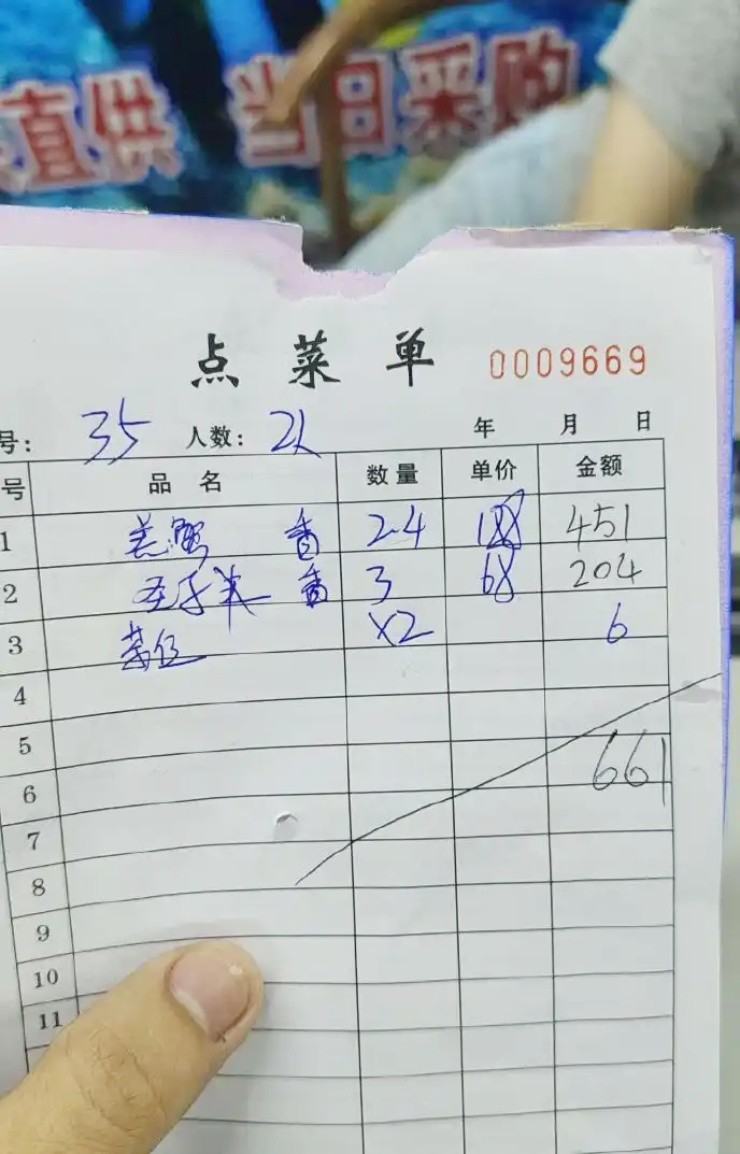 直供 当日采购
点菜单 0009669
号: 35 人数: 2人 年 月 日
号 品名 数量 单价 金额
1 羔蟹 香 2.4 188 451
2 圣子米 香 3 68 204
3 茶位 x2 6
4
5
661
6
7
8
9
10
11